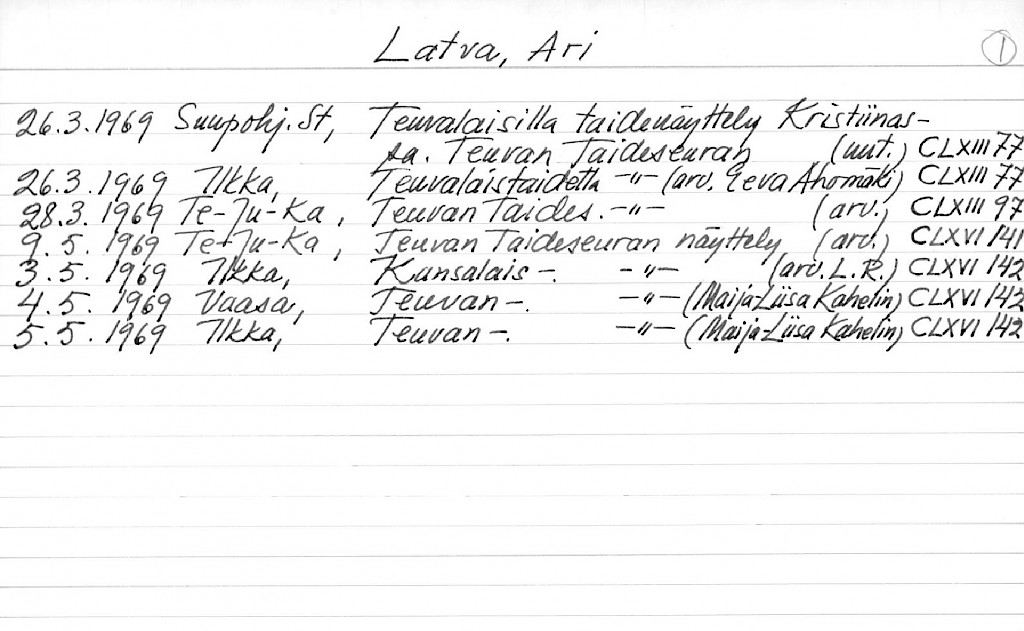 Latva, Ari 1
26.3.1969 Suupohj. St, Teuvalaisilla taidenäyttely Kristiinas-
sa. Teuvan Taideseuran (uut.) CLXIII 77
26.3.1969 Ilkka, Teuvalaistaidetta -"- (arv. Eeva Ahomäki) CLXIII 77
28.3.1969 Te-Ju-Ka, Teuvan Taides. -"- (arv.) CLXIII 97
9.5.1969 Te-Ju-Ka, Teuvan Taideseuran näyttely (arv.) CLXVI 141
3.5.1969 Ilkka, Kansalais-. -"- (arv. L.R.) CLXVI 142
4.5.1969 Vaasa, Teuvan-. -"- (Maija-Liisa Kahelin) CLXVI 142
5.5.1969 Ilkka, Teuvan-. -"- (Maija-Liisa Kahelin) CLXVI 142